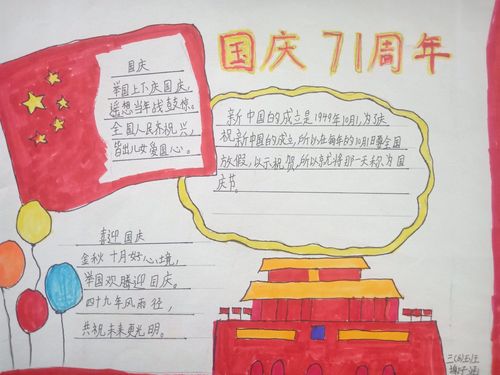 国庆71周年
国庆
举国上下庆国庆,
遥想当年战鼓惊。
全国人民齐祝兴,
皆出儿女爱国心。
新中国的成立是1949年10月1,为了庆
祝新中国的成立,所以在每年的10月1日要全国
放假,以示祝贺,所以京尤将那一天称为国
庆节。
喜迎国庆
金秋十月好心境,
举国欢腾迎国庆。
四十九年风雨径,
共祝未来更光明。
三(5)班